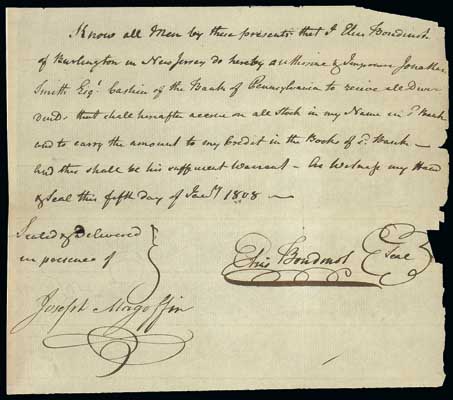 Know all Men by these presents that I Elias Boudinot
of Burlington in New Jersey do hereby authorise & Impower Jonathan
Smith Esqr. Cashier of the Bank of Pennsylvania to receive all Divi
dends that shall hereafter accrue on all Stock in my Name in sd. Bank
and to carry the amount to my Credit in the Books of sd. Bank —
and this shall be his sufficient Warrant — As Witness my Hand
& Seal this fifth day of Jany. 1808 —
Sealed & Delivered
in presence of
Elias Boudinot
Seal
Joseph Magoffin